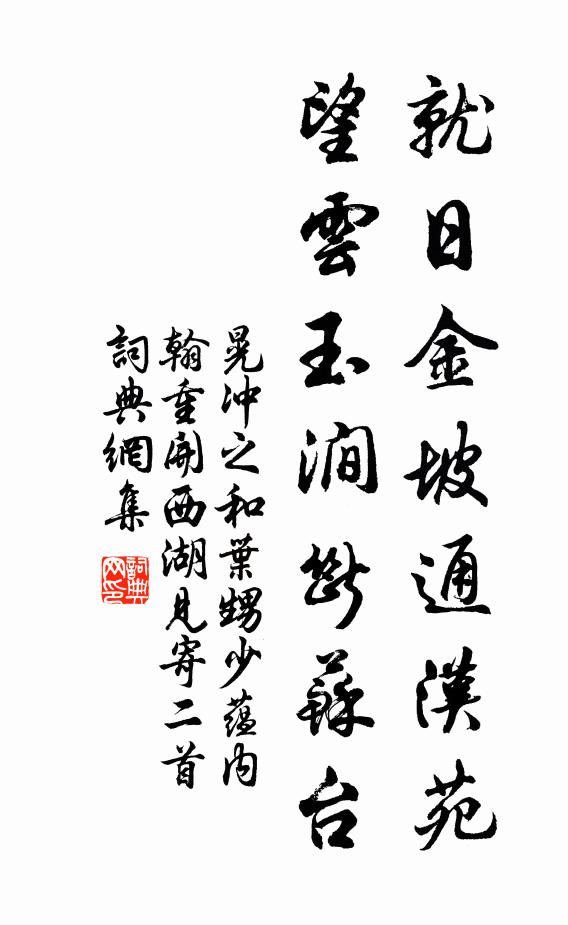 就日金坡通漢苑
望雲玉澗斷蘇台
晁冲之和葉甥少蘊内
翰重開西湖見寄二首
詞典網集
詞典网印